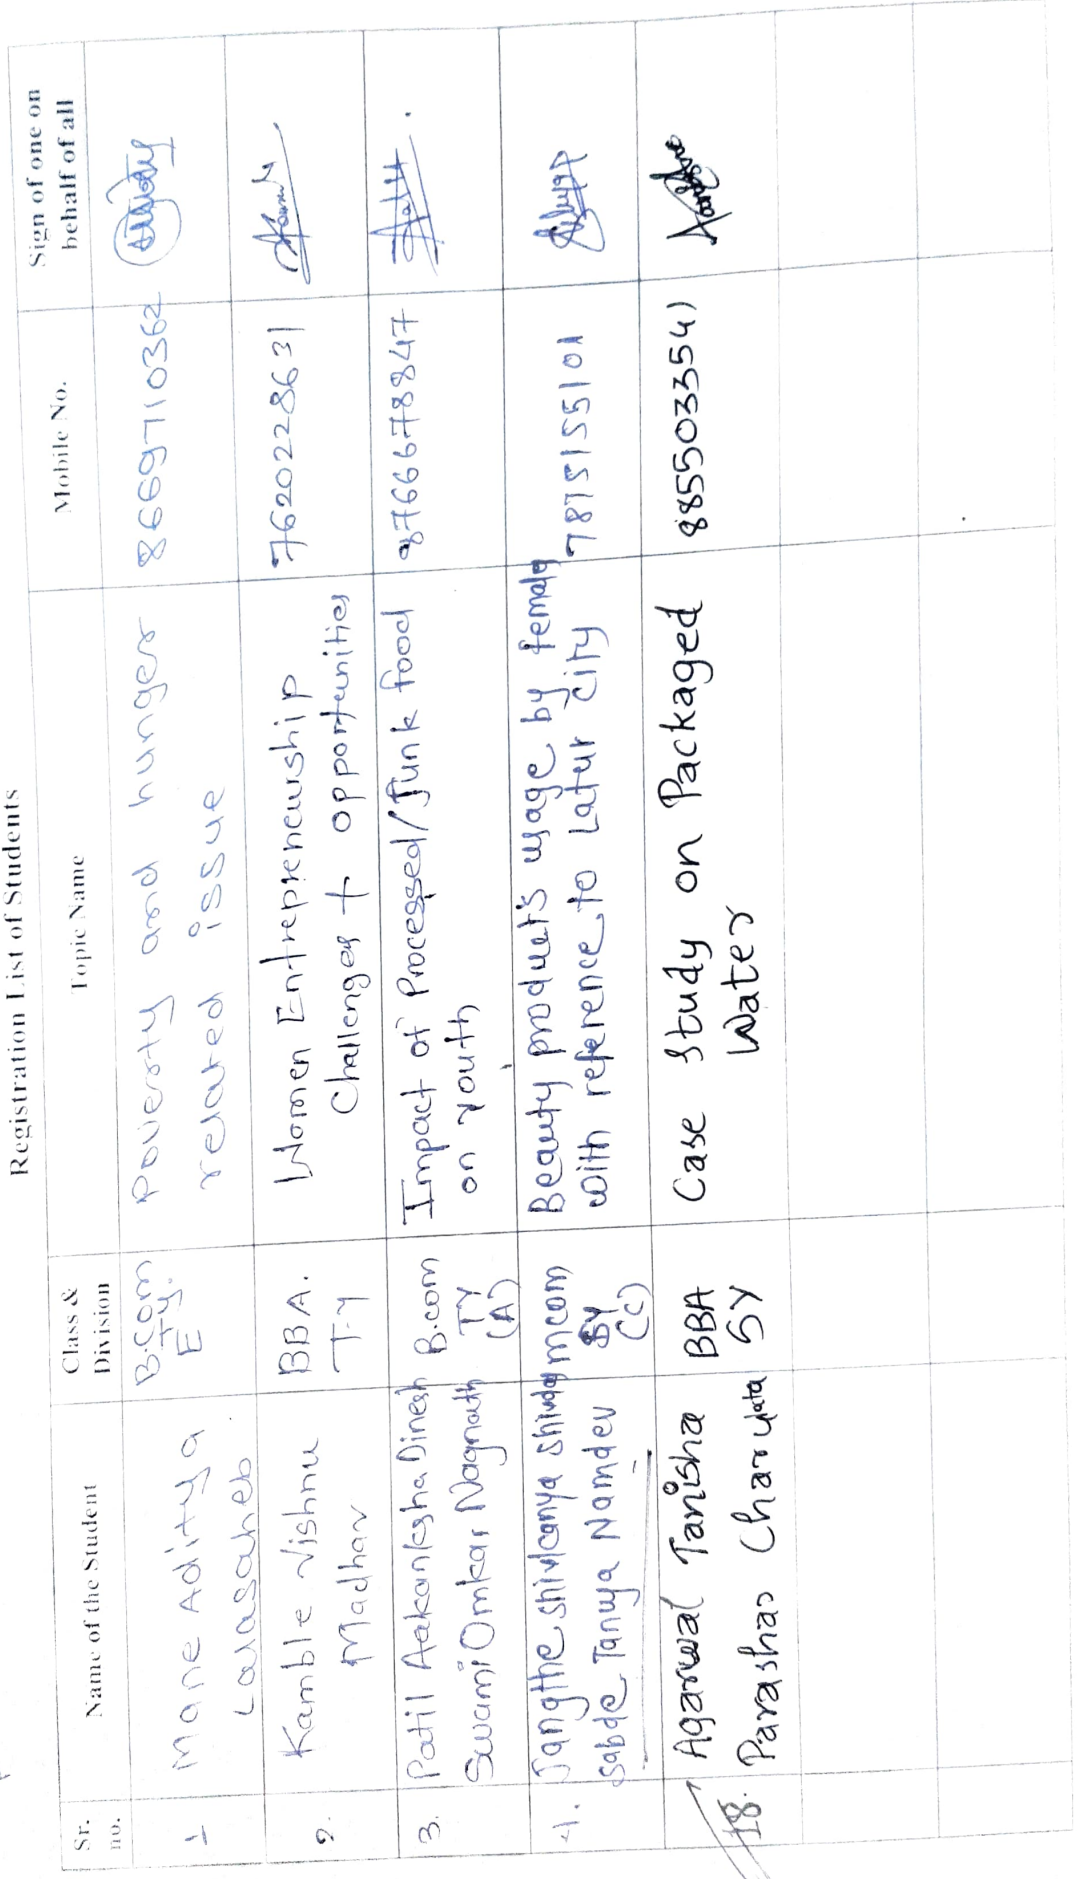 Registration List of Students
Sr. no.
Name of the Student
Class & Division
Topic Name
Mobile No.
Sign of one on behalf of all
1
Mane Aditya
Lalasaheb
B.Com
TY.
E
Poverty and hunger
related issue
8669710362
2.
Kamble Vishnu
Madhav
BBA.
T.Y
Women Entrepreneurship
Challenges + opportunities
7620228631
3.
Patil Aakanksha Dinesh
Swami Omkar Nagnath
B.com
TY
(A)
Impact of Processed/Junk food
on youth
8766678847
4.
Jangthe shivkanya shivdas
Sabde Tanuja Namdev
mcom
SY
(C)
Beauty product's usage by female
with reference to Latur city
7875155101
18.
Agarwal Tanisha
Parashar Charulata
BBA
SY
Case Study on Packaged
Water
8855033541